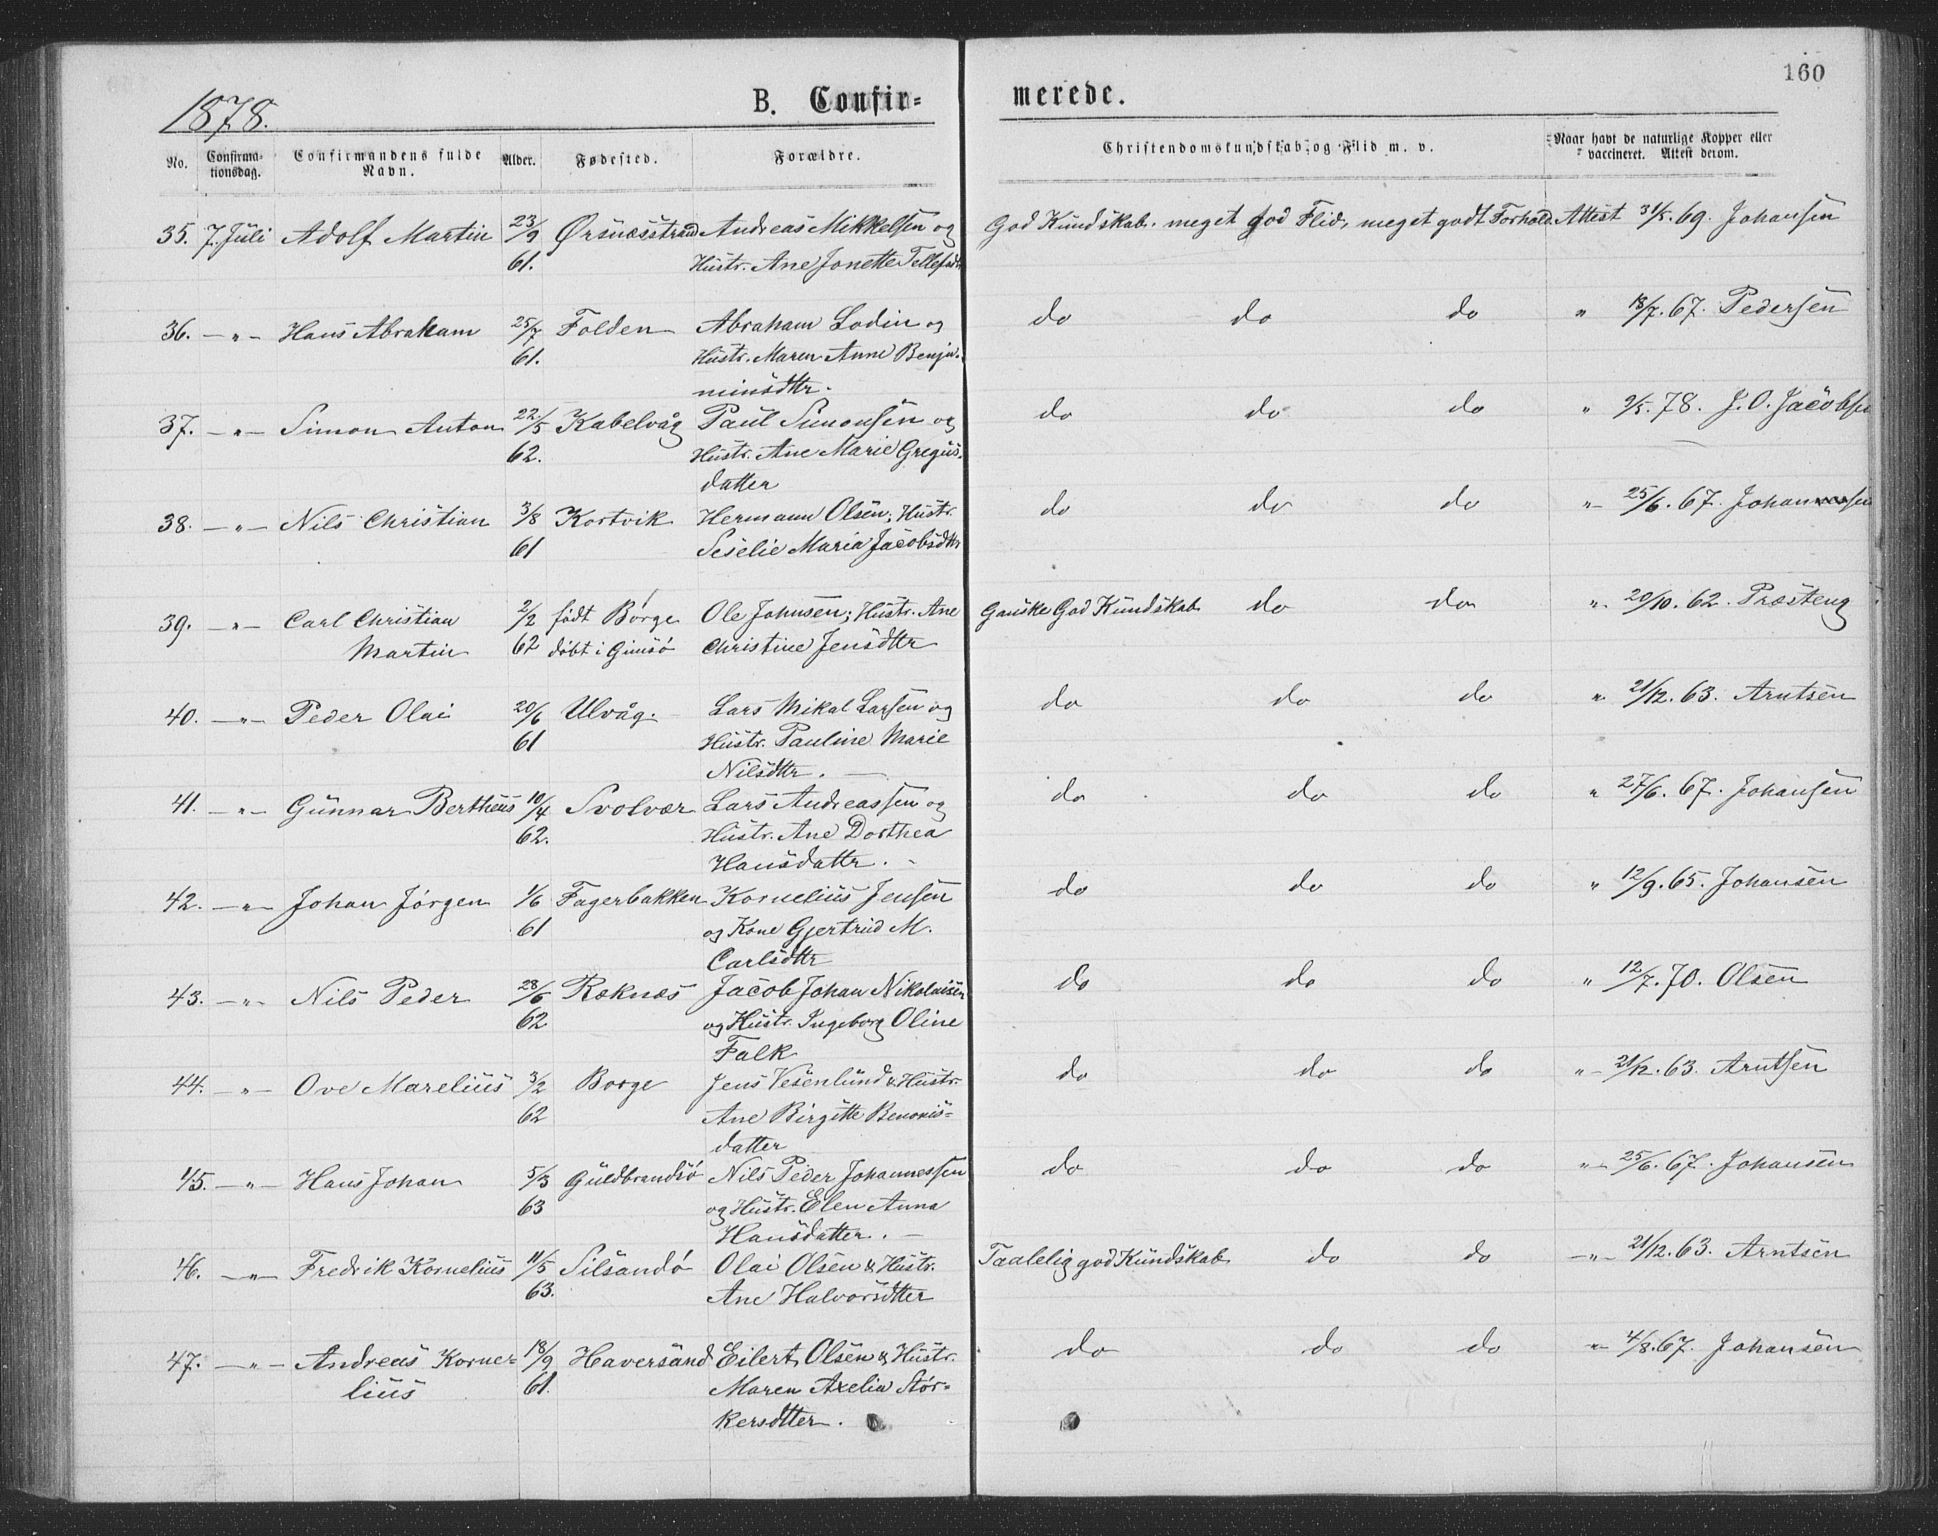 160
1878.
B. Confir=
merede.
No. Confirma-tionsdag. Confirmandens fulde Navn. Alder. Fødested. Forældre. Christendomskundskab og Flid m. v. Naar havt de naturlige Kopper eller vaccineret. Attest derom.
35. 7. Juli Adolf Martin 23/9 Ørsnæsstrand Andreas Mikkelsen og God Kundskab. meget god Flid, meget godt Forhold. Attest 31/5 69. Johansen
61. Hustr. Ane Jonette Tellefsdtr
36. — " — Hans Abraham 25/7 Folden Abraham Lodin og do do do " 18/7. 67. Pedersen
61. Hustr. Maren Anne Benja-
minsdttr.
37. — " — Simon Anton 22/5 Kabelvåg Paul Simonsen og do do do " 9/5. 78. J. O. Jacobsen
62. Hustr. Ane Marie Gregus-
datter
38. — " — Nils Christian 3/8 Kortvik Hermann Olsen; Hustr. do do do " 25/6. 67. Johansen
61 Seselie Maria Jacobsdttr
39. — " — Carl Christian 2/2 født Børge Ole Johnsen; Hustr. Ane Ganske God Kundskab do do " 20/10. 62. Præsteng
Martin 62 døbt i Gimsø Christine Jensdttr
40. — " — Peder Olai 20/6 Ulvåg. Lars Mikal Larsen og do do do " 21/12. 63. Arntsen
61 Hustr. Pauline Marie
Nilsdttr. —
41. — " — Gunnar Bertheus 10/4 Svolvær Lars Andreassen og do do do " 27/6. 67. Johansen
62. Hustr. Ane Dorthea
Hansdattr. -
42. — " — Johan Jørgen 1/6 Fagerbakken Kornelius Jensen do do do " 12/9. 65. Johansen
61 og Kone Gjertrud M.
Carlsdttr
43. — " — Nils Peder 28/6 Ræknæs Jacob Johan Nikolaisen do do do " 12/7. 70. Olsen
62 og Hustr. Ingeborg Oline
Falk
44. — " — Ove Marelius 3/2 Borge Jens Vesenlund & Hustr. do do do " 21/12. 63. Arntsen
62 Ane Birgitte Benonis=
datter
45. — " — Hans Johan 5/3 Guldbrandsø Nils Peder Johannessen do do do " 25/6. 67. Johansen
63 og Hustr. Elen Anna
Hansdatter. —
46. — " — Fredrik Kornelius 11/5 Silsandø Olai Olsen & Hustr. Taalelig god Kundskab do do — " — 21/12. 63. Arntsen
63. Ane Halvorsdtter
47. — " — Andreas Korne= 18/9 Haversand Eilert Olsen & Hustr. do do do " 4/8. 67. Johansen
lius 61. Maren Axelia Stør=
kersdtter.